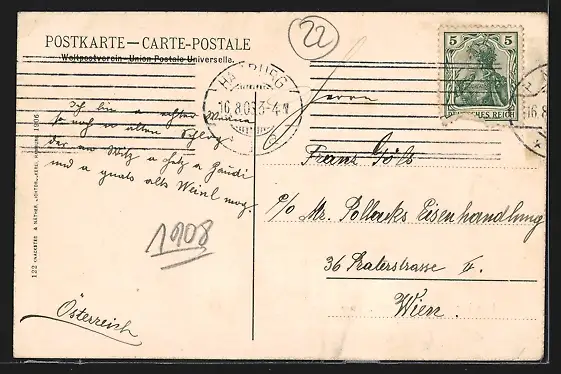 POSTKARTE — CARTE-POSTALE
Weltpostverein - Union Postale Universelle.
22
5 5
DEUTSCHES REICH
HAMBURG
16.8.08.3-4N
Ich bin a echter Wiener
so nach n alten Schlag
der an Witz a Hetz a Gaudi
und a guats alts Weinl mag.
1908
Österreich
Herrn
Franz Göls
c/o Mr. Pollacks Eisenhandlung
36 Praterstrasse II.
Wien.